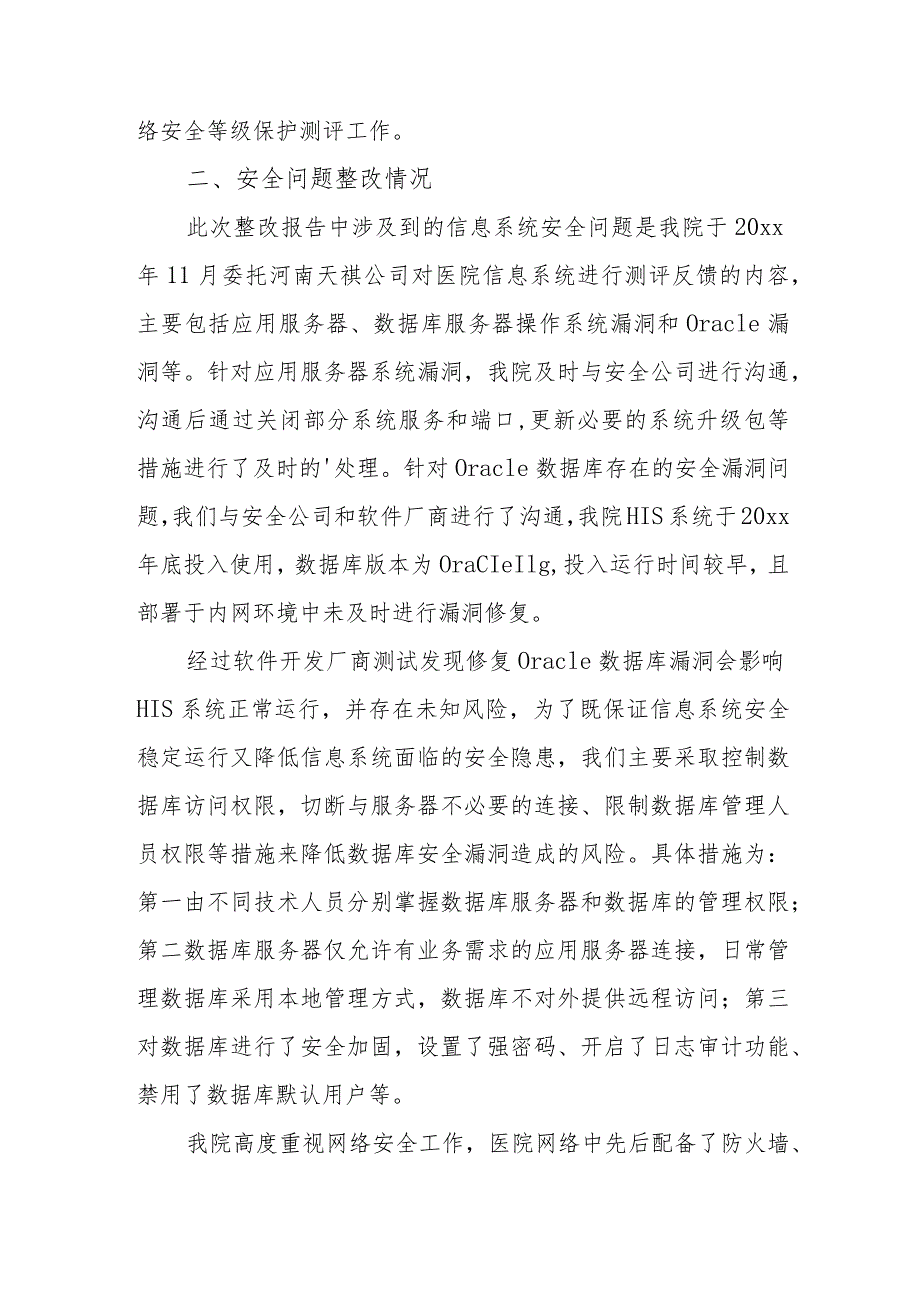 络安全等级保护测评工作。
二、安全问题整改情况
此次整改报告中涉及到的信息系统安全问题是我院于20xx
年11月委托河南天祺公司对医院信息系统进行测评反馈的内容，
主要包括应用服务器、数据库服务器操作系统漏洞和Oracle漏
洞等。针对应用服务器系统漏洞，我院及时与安全公司进行沟通，
沟通后通过关闭部分系统服务和端口,更新必要的系统升级包等
措施进行了及时的'处理。针对Oracle数据库存在的安全漏洞问
题,我们与安全公司和软件厂商进行了沟通,我院HIS系统于20xx
年底投入使用，数据库版本为OraCIeIlg,投入运行时间较早，且
部署于内网环境中未及时进行漏洞修复。
经过软件开发厂商测试发现修复Oracle数据库漏洞会影响
HIS系统正常运行，并存在未知风险，为了既保证信息系统安全
稳定运行又降低信息系统面临的安全隐患，我们主要采取控制数
据库访问权限，切断与服务器不必要的连接、限制数据库管理人
员权限等措施来降低数据库安全漏洞造成的风险。具体措施为：
第一由不同技术人员分别掌握数据库服务器和数据库的管理权限；
第二数据库服务器仅允许有业务需求的应用服务器连接，日常管
理数据库采用本地管理方式，数据库不对外提供远程访问；第三
对数据库进行了安全加固，设置了强密码、开启了日志审计功能、
禁用了数据库默认用户等。
我院高度重视网络安全工作，医院网络中先后配备了防火墙、